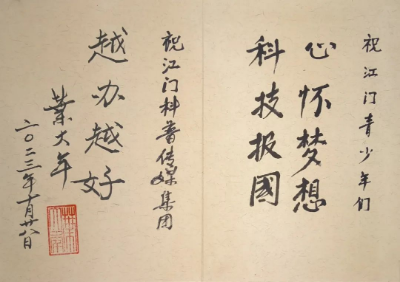 祝江门青少年们
心怀梦想
科技报國
祝江门科普传媒集团
越办越好
叶大年
二〇二三年十月廿八日